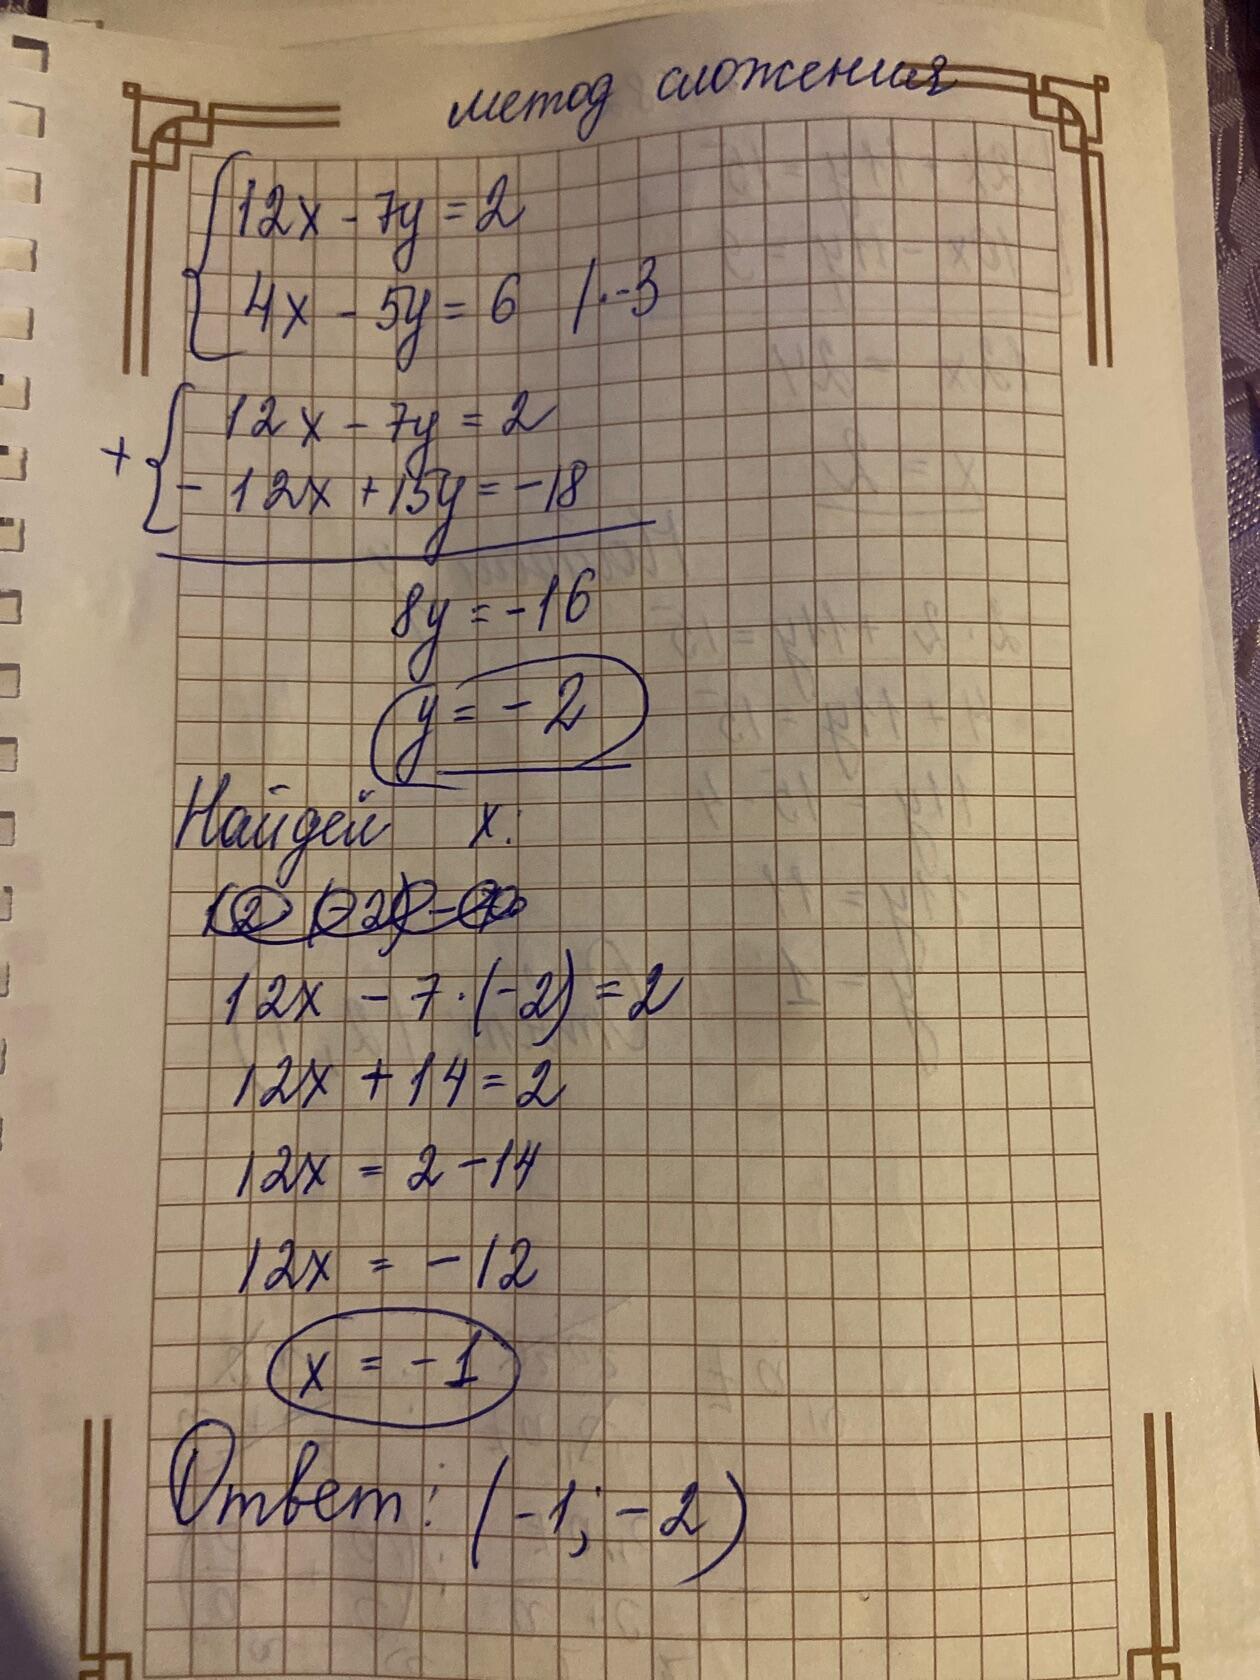 метод сложения
12x - 7y = 2
4x - 5y = 6 /·-3
+ 12x - 7y = 2
- 12x + 15y = -18
8y = -16
y = - 2
Найдей x:
12x - 7·(-2) = 2
12x + 14 = 2
12x = 2 - 14
12x = - 12
x = - 1
Ответ: (-1; - 2)